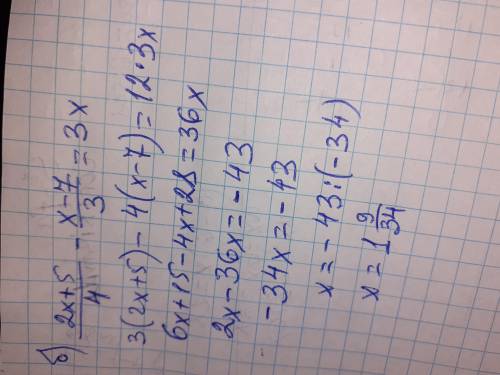 б) (2x+5)/4 - (x-7)/3 = 3x
3(2x+5) - 4(x-7) = 12·3x
6x+15-4x+28=36x
2x-36x=-43
-34x=-43
x=-43:(-34)
x=1 9/34